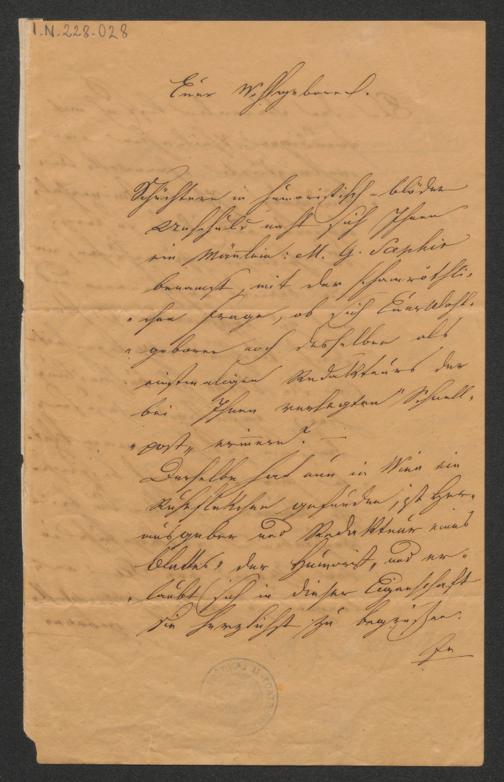 I.N. 228.028
Euer Wohlgeboren!
Schüchtern in humoristisch-blöder
Unschuld naht sich Ihnen
ein Männlein: M. G. Saphir
benamst, mit der schamröthli-
chen Frage, ob sich Euer Wohl-
geboren noch desselben als
einstmaligen Redakteurs der
bei Ihnen verlegten "Schnell-
post" erinnern? —
Derselbe hat nun in Wien ein
Ruhefleckchen gefunden, ist Her-
ausgeber und Redakteur eines
Blattes, der Humorist, und er-
laubt sich in dieser Eigenschaft
Sie herzlichst zu begrüßen.